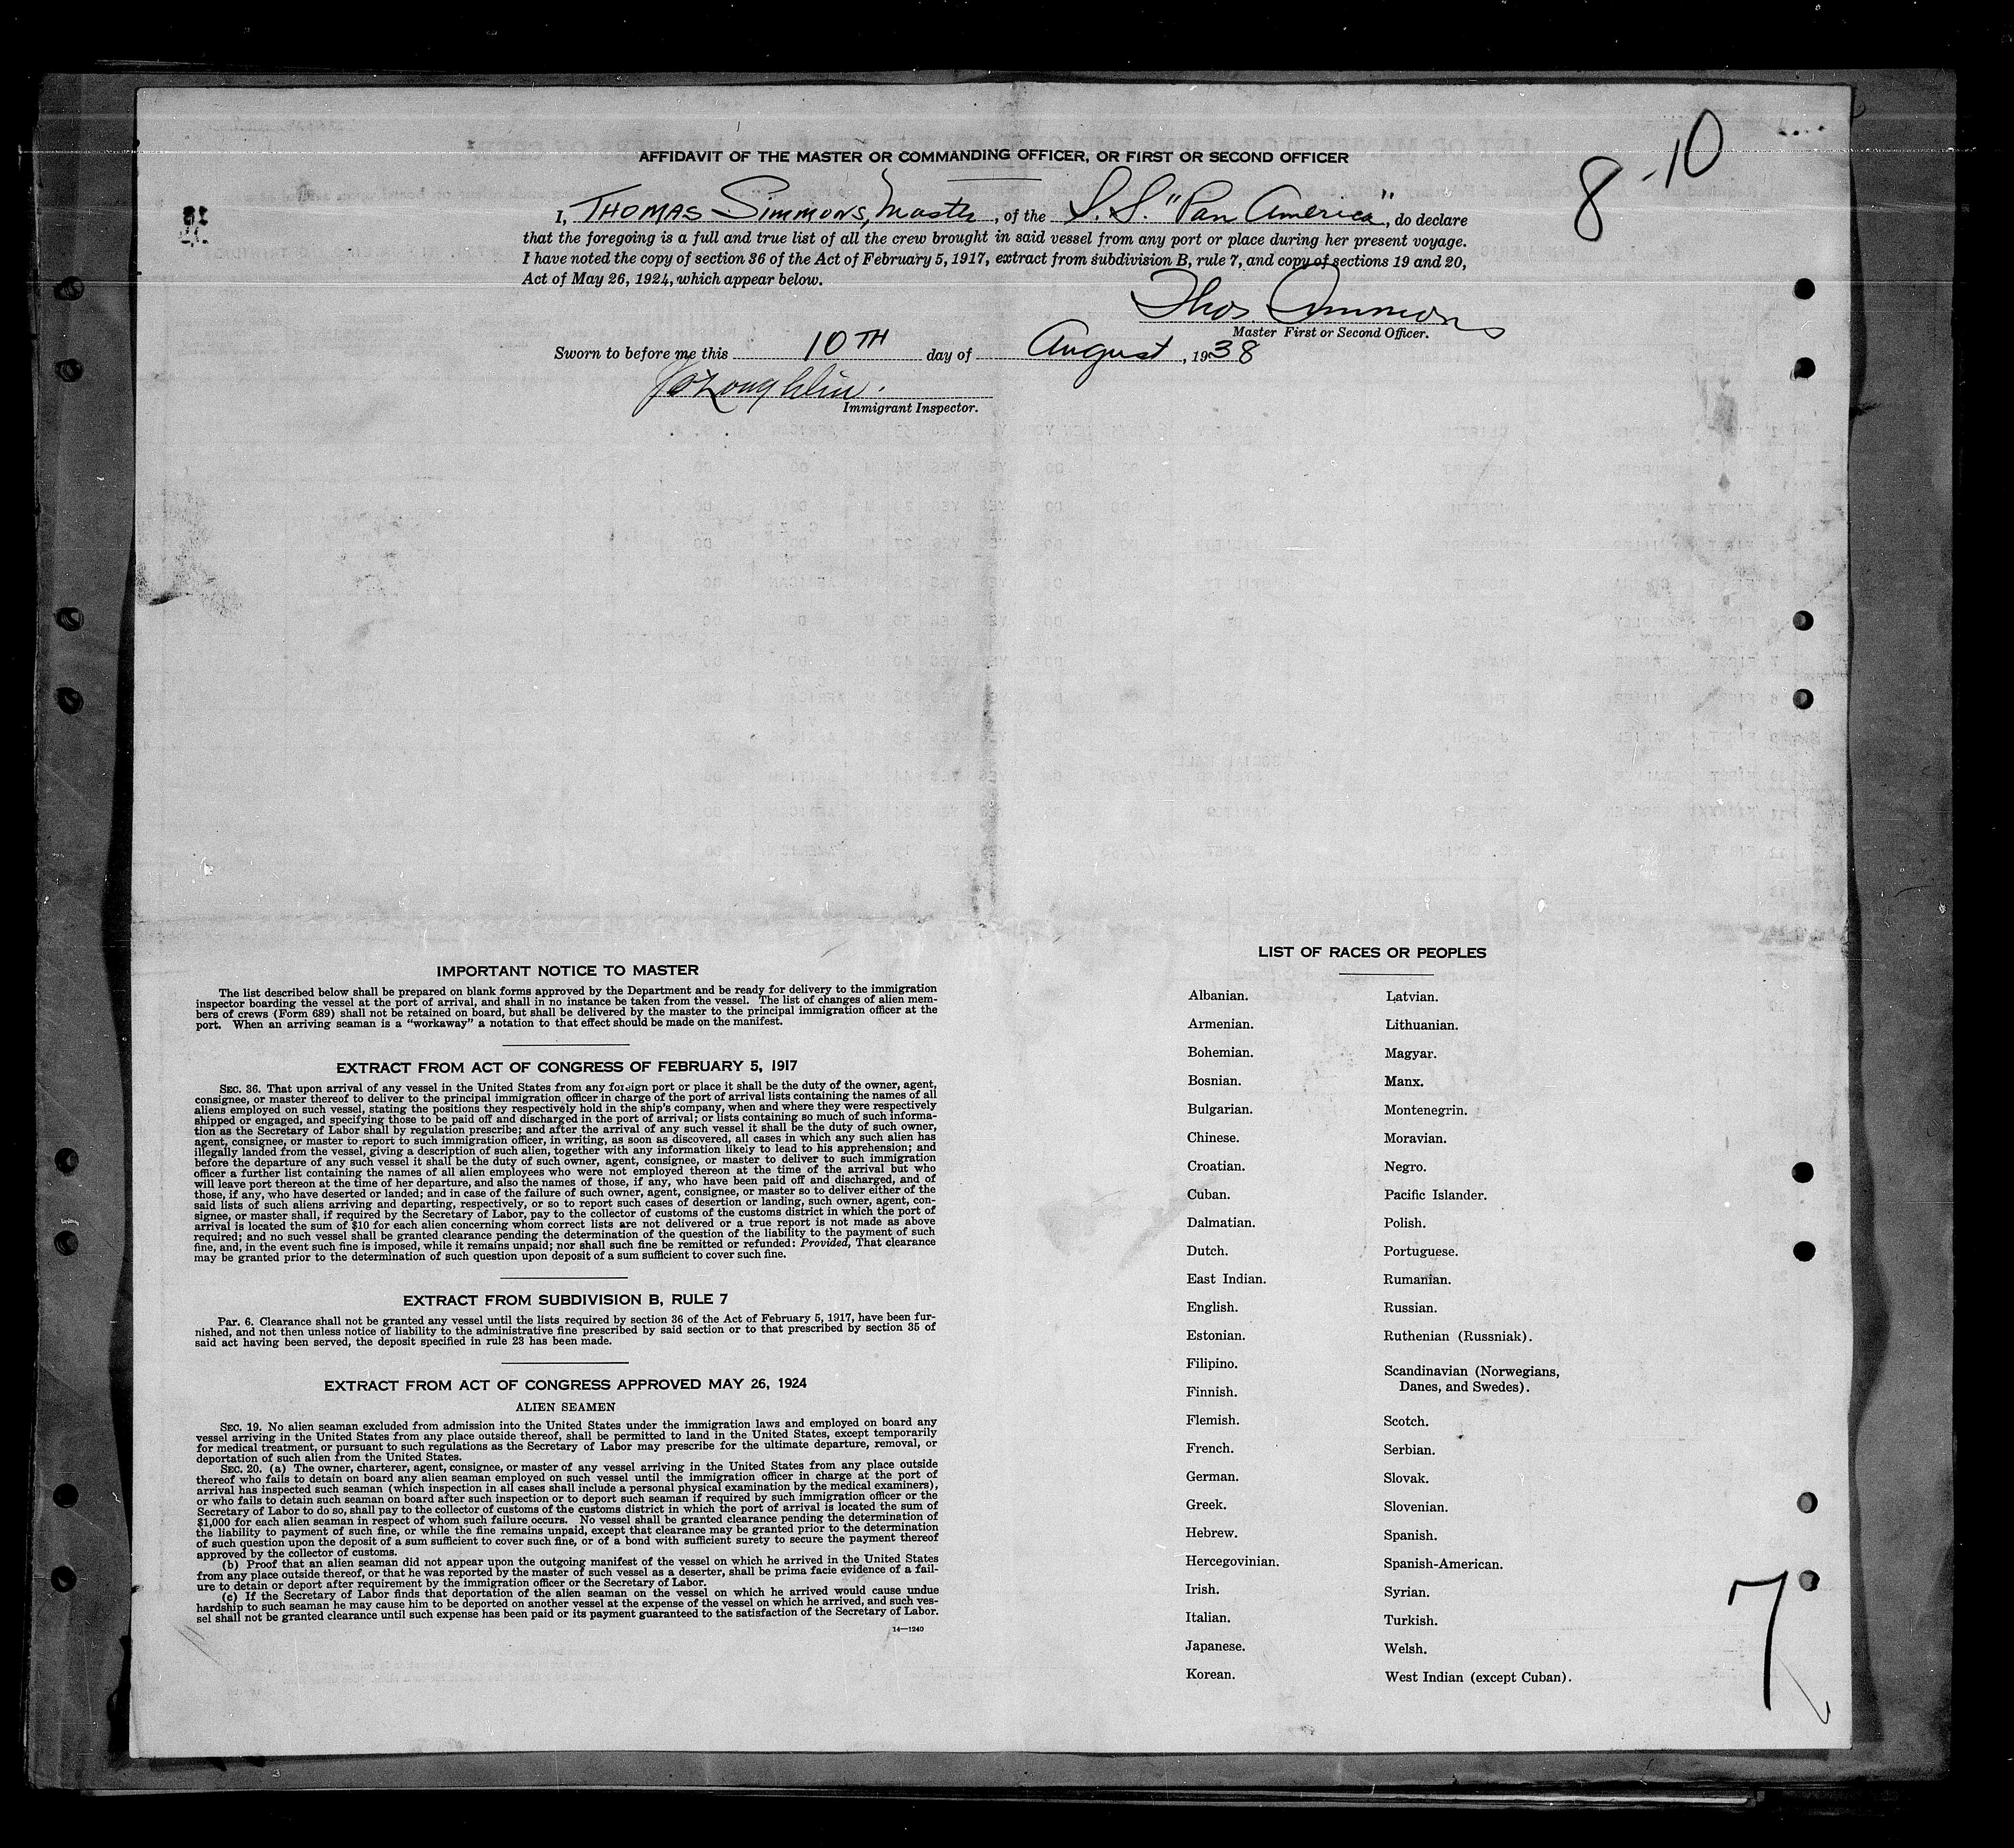 8-10
AFFIDAVIT OF THE MASTER OR COMMANDING OFFICER, OR FIRST OR SECOND OFFICER
I, THOMAS Simmons, Master, of the S.S. "Pan America", do declare
that the foregoing is a full and true list of all the crew brought in said vessel from any port or place during her present voyage.
I have noted the copy of section 36 of the Act of February 5, 1917, extract from subdivision B, rule 7, and copy of sections 19 and 20,
Act of May 26, 1924, which appear below.
Thos. Simmons
Master First or Second Officer.
Sworn to before me this 10TH day of August, 1938
O'Loughlin.
Immigrant Inspector.
IMPORTANT NOTICE TO MASTER
The list described below shall be prepared on blank forms approved by the Department and be ready for delivery to the immigration
inspector boarding the vessel at the port of arrival, and shall in no instance be taken from the vessel. The list of changes of alien mem-
bers of crews (Form 689) shall not be retained on board, but shall be delivered by the master to the principal immigration officer at the
port. When an arriving seaman is a "workaway" a notation to that effect should be made on the manifest.
EXTRACT FROM ACT OF CONGRESS OF FEBRUARY 5, 1917
SEC. 36. That upon arrival of any vessel in the United States from any foreign port or place it shall be the duty of the owner, agent,
consignee, or master thereof to deliver to the principal immigration officer in charge of the port of arrival lists containing the names of all
aliens employed on such vessel, stating the positions they respectively hold in the ship's company, when and where they were respectively
shipped or engaged, and specifying those to be paid off and discharged in the port of arrival; or lists containing so much of such informa-
tion as the Secretary of Labor shall by regulation prescribe; and after the arrival of any such vessel it shall be the duty of such owner,
agent, consignee, or master to report to such immigration officer, in writing, as soon as discovered, all cases in which any such alien has
illegally landed from the vessel, giving a description of such alien, together with any information likely to lead to his apprehension; and
before the departure of any such vessel it shall be the duty of such owner, agent, consignee, or master to deliver to such immigration
officer a further list containing the names of all alien employees who were not employed thereon at the time of the arrival but who
will leave port thereon at the time of her departure, and also the names of those, if any, who have been paid off and discharged, and of
those, if any, who have deserted or landed; and in case of the failure of such owner, agent, consignee, or master so to deliver either of the
said lists of such aliens arriving and departing, respectively, or so to report such cases of desertion or landing, such owner, agent, con-
signee, or master shall, if required by the Secretary of Labor, pay to the collector of customs of the customs district in which the port of
arrival is located the sum of $10 for each alien concerning whom correct lists are not delivered or a true report is not made as above
required; and no such vessel shall be granted clearance pending the determination of the question of the liability to the payment of such
fine, and, in the event such fine is imposed, while it remains unpaid; nor shall such fine be remitted or refunded: Provided, That clearance
may be granted prior to the determination of such question upon deposit of a sum sufficient to cover such fine.
EXTRACT FROM SUBDIVISION B, RULE 7
Par. 6. Clearance shall not be granted any vessel until the lists required by section 36 of the Act of February 5, 1917, have been fur-
nished, and not then unless notice of liability to the administrative fine prescribed by said section or to that prescribed by section 35 of
said act having been served, the deposit specified in rule 23 has been made.
EXTRACT FROM ACT OF CONGRESS APPROVED MAY 26, 1924
ALIEN SEAMEN
SEC. 19. No alien seaman excluded from admission into the United States under the immigration laws and employed on board any
vessel arriving in the United States from any place outside thereof, shall be permitted to land in the United States, except temporarily
for medical treatment, or pursuant to such regulations as the Secretary of Labor may prescribe for the ultimate departure, removal, or
deportation of such alien from the United States.
SEC. 20. (a) The owner, charterer, agent, consignee, or master of any vessel arriving in the United States from any place outside
thereof who fails to detain on board any alien seaman employed on such vessel until the immigration officer in charge at the port of
arrival has inspected such seaman (which inspection in all cases shall include a personal physical examination by the medical examiners),
or who fails to detain such seaman on board after such inspection or to deport such seaman if required by such immigration officer or the
Secretary of Labor to do so, shall pay to the collector of customs of the customs district in which the port of arrival is located the sum of
$1,000 for each alien seaman in respect of whom such failure occurs. No vessel shall be granted clearance pending the determination of
the liability to payment of such fine, or while the fine remains unpaid, except that clearance may be granted prior to the determination
of such question upon the deposit of a sum sufficient to cover such fine, or of a bond with sufficient surety to secure the payment thereof
approved by the collector of customs.
(b) Proof that an alien seaman did not appear upon the outgoing manifest of the vessel on which he arrived in the United States
from any place outside thereof, or that he was reported by the master of such vessel as a deserter, shall be prima facie evidence of a fail-
ure to detain or deport after requirement by the immigration officer or the Secretary of Labor.
(c) If the Secretary of Labor finds that deportation of the alien seaman on the vessel on which he arrived would cause undue
hardship to such seaman he may cause him to be deported on another vessel at the expense of the vessel on which he arrived, and such ves-
sel shall not be granted clearance until such expense has been paid or its payment guaranteed to the satisfaction of the Secretary of Labor.
14—1240
LIST OF RACES OR PEOPLES
Albanian.
Armenian.
Bohemian.
Bosnian.
Bulgarian.
Chinese.
Croatian.
Cuban.
Dalmatian.
Dutch.
East Indian.
English.
Estonian.
Filipino.
Finnish.
Flemish.
French.
German.
Greek.
Hebrew.
Hercegovinian.
Irish.
Italian.
Japanese.
Korean.
Latvian.
Lithuanian.
Magyar.
Manx.
Montenegrin.
Moravian.
Negro.
Pacific Islander.
Polish.
Portuguese.
Rumanian.
Russian.
Ruthenian (Russniak).
Scandinavian (Norwegians,
Danes, and Swedes).
Scotch.
Serbian.
Slovak.
Slovenian.
Spanish.
Spanish-American.
Syrian.
Turkish.
Welsh.
West Indian (except Cuban).
7